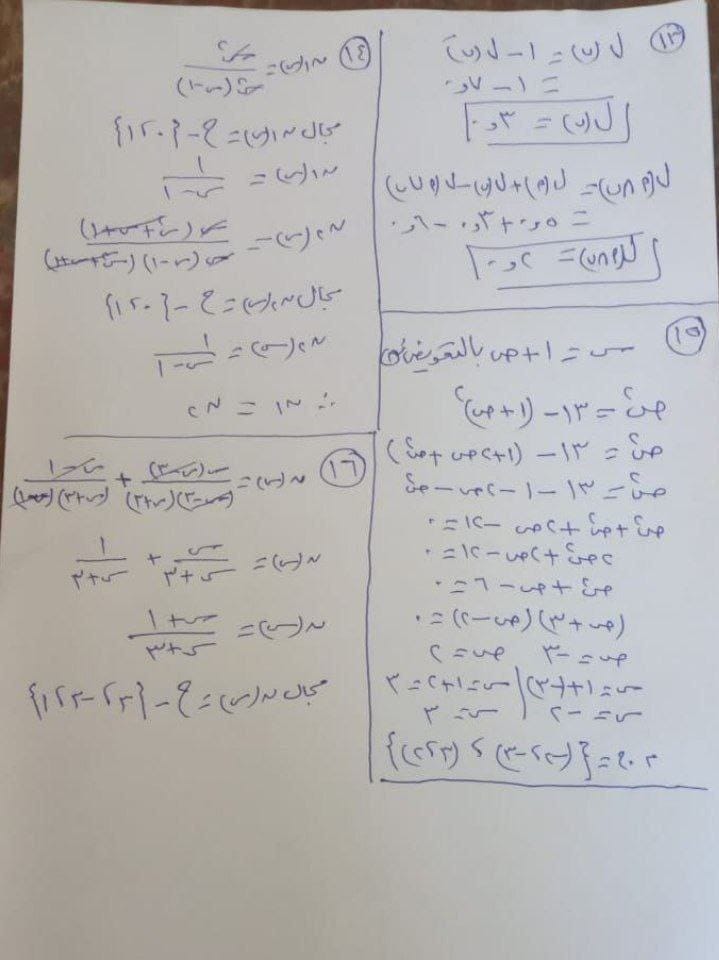 (١٣)
ل(ب) = ١ - ل(بَ)
= ١ - ٠,٧
ل(ب) = ٠,٣
ل(م ∩ ب) = ل(م) + ل(ب) - ل(م ∪ ب)
= ٠,٥ + ٠,٣ - ٠,٦
ل(م ∩ ب) = ٠,٢
(١٤)
ن١(س) = س² / س²(س - ١)
مجال ن١(س) = ح - {٠، ١}
ن١(س) = ١ / س - ١
ن٢(س) = س(س² + س + ١) / س(س - ١)(س² + س + ١)
مجال ن٢(س) = ح - {٠، ١}
ن٢(س) = ١ / س - ١
∴ ن١ = ن٢
(١٥)
س = ١ + ص بالتعويض
ص² = ١٣ - (١ + ص)²
ص² = ١٣ - (١ + ٢ص + ص²)
ص² = ١٣ - ١ - ٢ص - ص²
ص² + ص² + ٢ص - ١٢ = ٠
٢ص² + ٢ص - ١٢ = ٠
ص² + ص - ٦ = ٠
(ص + ٣)(ص - ٢) = ٠
ص = -٣ ص = ٢
س = ١ + (-٣) | س = ١ + ٢ = ٣
س = -٢ | س = ٣
م.ح = {(-٢، -٣)، (٣، ٢)}
(١٦)
ن(س) = س(س - ٣) / (س - ٣)(س + ٣) + س - ١ / (س + ٣)(س - ١)
ن(س) = س / س + ٣ + ١ / س + ٣
ن(س) = س + ١ / س + ٣
مجال ن(س) = ح - {٣، -٣، ١}